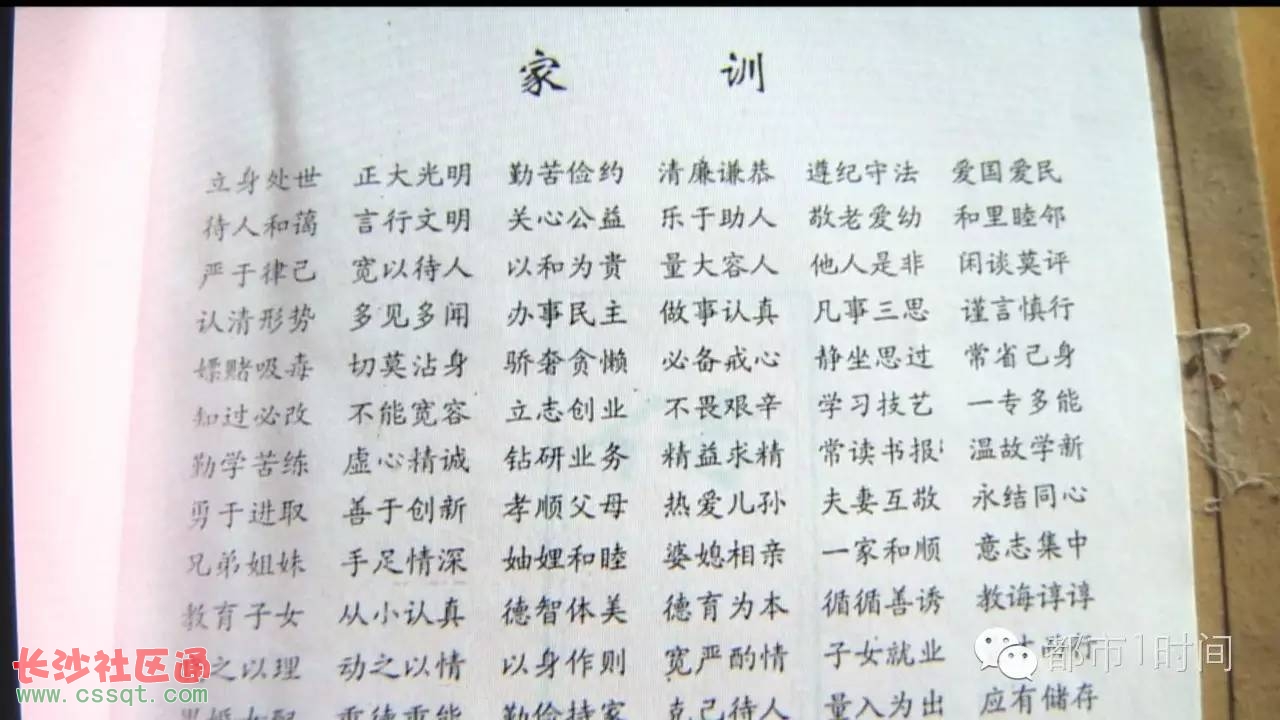 家 训
立身处世 正大光明 勤苦俭约 清廉谦恭 遵纪守法 爱国爱民
待人和蔼 言行文明 关心公益 乐于助人 敬老爱幼 和里睦邻
严于律己 宽以待人 以和为贵 量大容人 他人是非 闲谈莫评
认清形势 多见多闻 办事民主 做事认真 凡事三思 谨言慎行
嫖赌吸毒 切莫沾身 骄奢贪懒 必备戒心 静坐思过 常省己身
知过必改 不能宽容 立志创业 不畏艰辛 学习技艺 一专多能
勤学苦练 虚心精诚 钻研业务 精益求精 常读书报 温故学新
勇于进取 善于创新 孝顺父母 热爱儿孙 夫妻互敬 永结同心
兄弟姐妹 手足情深 妯娌和睦 婆媳相亲 一家和顺 意志集中
教育子女 从小认真 德智体美 德育为本 循循善诱 教诲谆谆
之以理 动之以情 以身作则 宽严酌情 子女就业
重德重能 勤俭持家 克己待人 量入为出 应有储存
长沙社区通
www.cssqt.com
都市1时间